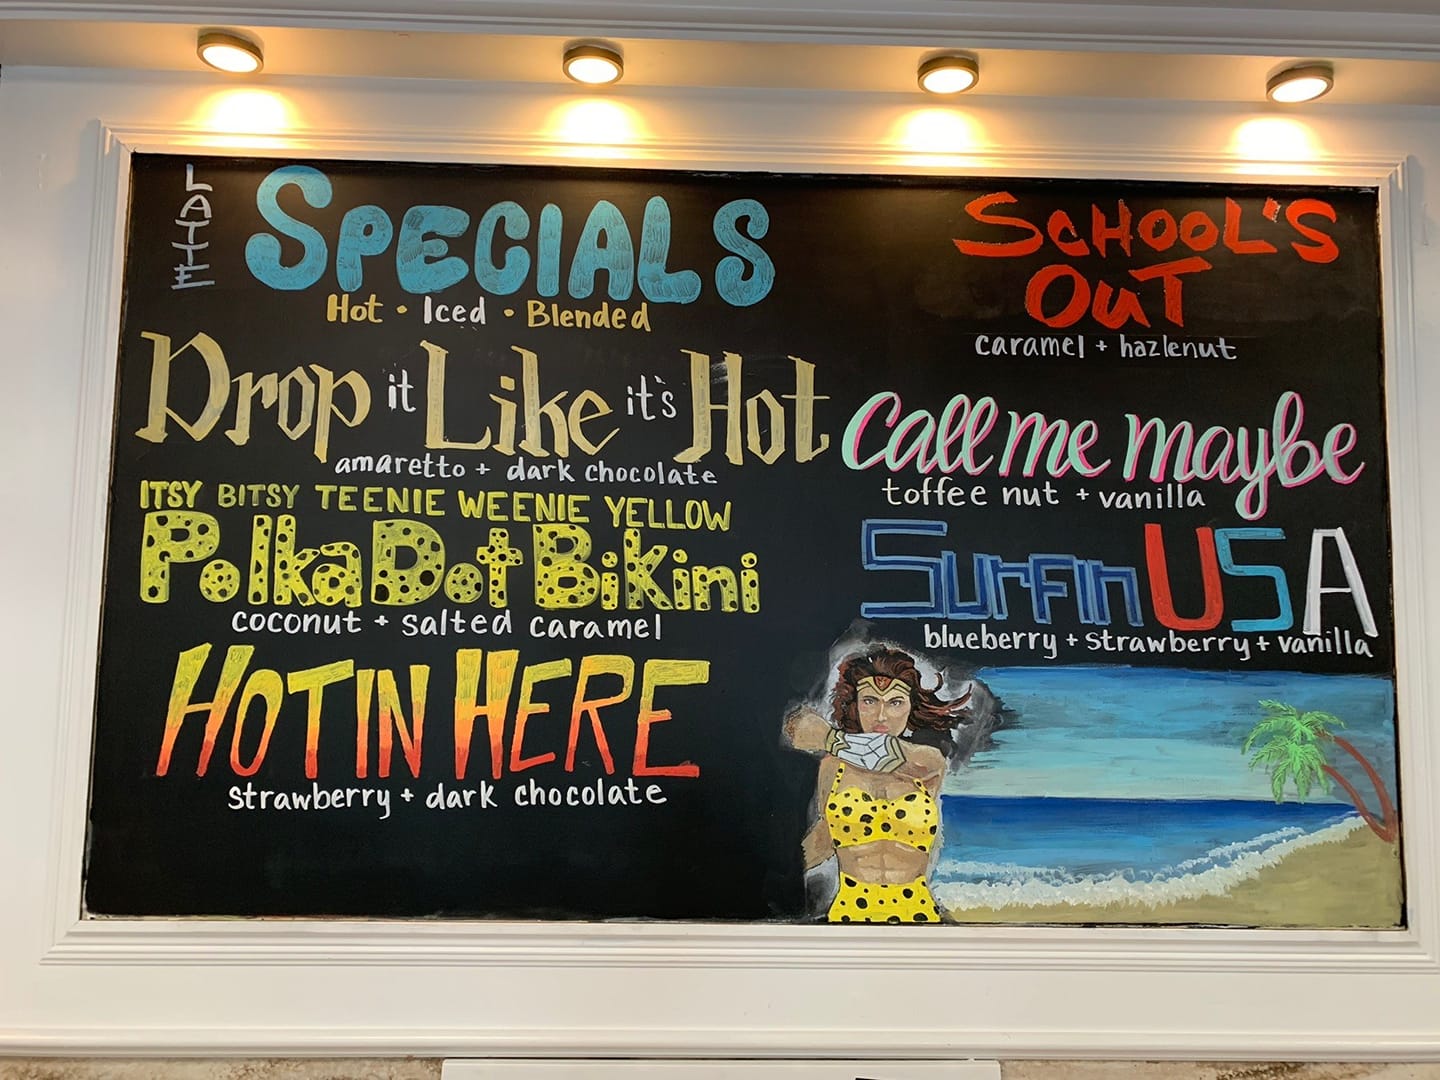 LATTE
SPECIALS
Hot • Iced • Blended
Drop it Like it's Hot
amaretto + dark chocolate
ITSY BITSY TEENIE WEENIE YELLOW
Polka Dot Bikini
coconut + salted caramel
HOT IN HERE
strawberry + dark chocolate
SCHOOL'S
OUT
caramel + hazlenut
Call me maybe
toffee nut + vanilla
Surfin USA
blueberry + strawberry + vanilla